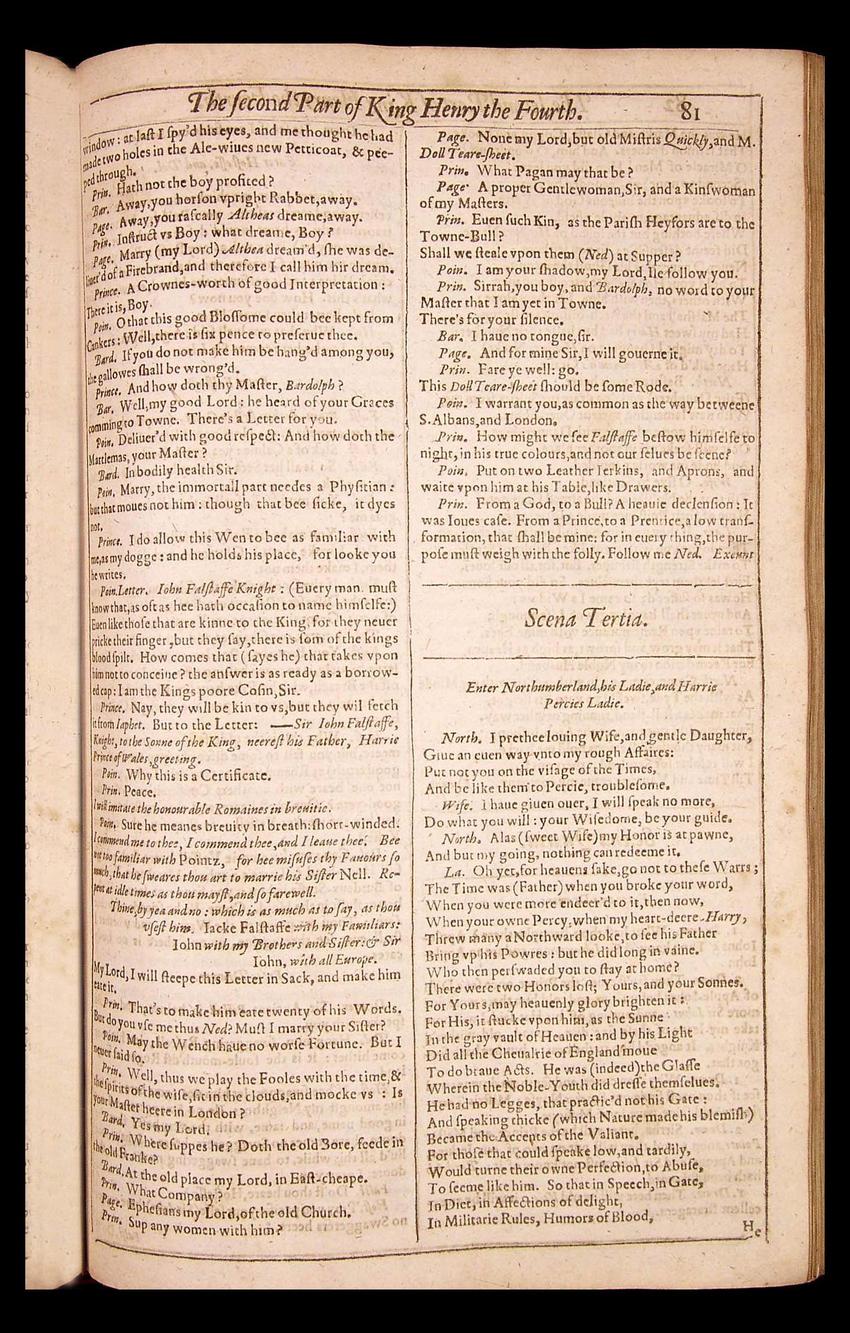 The ſecond Part of King Henry the Fourth. 81
window: at laſt I ſpy'd his eyes, and me thought he had
made two holes in the Ale-wiues new Petticoat, & pee-
ped through.
Prin. Hath not the boy profited?
Bar. Away, you horſon vpright Rabbet, away.
Page. Away, you raſcally Altheas dreame, away.
Prin. Inſtruct vs Boy: what dreame, Boy?
Page. Marry (my Lord) Althea dream'd, ſhe was de-
liuer'd of a Firebrand, and therefore I call him hir dream.
Prince. A Crownes-worth of good Interpretation:
There it is, Boy.
Poin. O that this good Bloſſome could bee kept from
Cankers: Well, there is ſix pence to preſerue thee.
Bard. If you do not make him be hang'd among you,
the gallowes ſhall be wrong'd.
Prince. And how doth thy Maſter, Bardolph?
Bar. Well, my good Lord: he heard of your Graces
comming to Towne. There's a Letter for you.
Poin. Deliuer'd with good reſpect: And how doth the
Martlemas, your Maſter?
Bard. In bodily health Sir.
Poin. Marry, the immortall part needes a Phyſitian:
but that moues not him: though that bee ſicke, it dyes
not.
Prince. I do allow this Wen to bee as familiar with
me, as my dogge: and he holds his place, for looke you
he writes.
Poin. Letter. Iohn Falſtaffe Knight: (Euery man muſt
know that, as oft as hee hath occaſion to name himſelfe:)
Euen like thoſe that are kinne to the King, for they neuer
pricke their finger, but they ſay, there is ſom of the kings
blood ſpilt. How comes that (ſayes he) that takes vpon
him not to conceiue? the anſwer is as ready as a borrow-
ed cap: I am the Kings poore Coſin, Sir.
Prince. Nay, they will be kin to vs, but they wil fetch
it from Iaphet. But to the Letter: —Sir Iohn Falſtaffe,
Knight, to the Sonne of the King, neereſt his Father, Harrie
Prince of Wales, greeting.
Poin. Why this is a Certificate.
Prin. Peace.
I will imitate the honourable Romaines in breuitie.
Poin. Sure he meanes breuity in breath: ſhort-winded.
I commend me to thee, I commend thee, and I leaue thee. Bee
not too familiar with Pointz, for hee miſuſes thy Fauours ſo
much, that he ſweares thou art to marrie his Siſter Nell. Re-
pent at idle times as thou mayſt, and ſo farewell.
Thine, by yea and no: which is as much as to ſay, as thou
vſeſt him. Iacke Falſtaffe with my Familiars:
Iohn with my Brothers and Siſter: & Sir
Iohn, with all Europe.
My Lord, I will ſteepe this Letter in Sack, and make him
eate it.
Prin. That's to make him eate twenty of his Words.
But do you vſe me thus Ned? Muſt I marry your Siſter?
Poin. May the Wench haue no worſe Fortune. But I
neuer ſaid ſo.
Prin. Well, thus we play the Fooles with the time, &
the ſpirits of the wiſe, ſit in the clouds, and mocke vs: Is
your Maſter heere in London?
Bard. Yes my Lord.
Prin. Where ſuppes he? Doth the old Bore, feede in
the old Franke?
Bard. At the old place my Lord, in Eaſt-cheape.
Prin. What Company?
Page. Epheſians my Lord, of the old Church.
Prin. Sup any women with him?
Page. None my Lord, but old Miſtris Quickly, and M.
Doll Teare-ſheet.
Prin. What Pagan may that be?
Page. A proper Gentlewoman, Sir, and a Kinſwoman
of my Maſters.
Prin. Euen ſuch Kin, as the Pariſh Heyfors are to the
Towne-Bull?
Shall we ſteale vpon them (Ned) at Supper?
Poin. I am your ſhadow, my Lord, Ile follow you.
Prin. Sirrah, you boy, and Bardolph, no word to your
Maſter that I am yet in Towne.
There's for your ſilence.
Bar. I haue no tongue, ſir.
Page. And for mine Sir, I will gouerne it.
Prin. Fare ye well: go.
This Doll Teare-ſheet ſhould be ſome Rode.
Poin. I warrant you, as common as the way betweene
S. Albans, and London.
Prin. How might we ſee Falſtaffe beſtow himſelfe to
night, in his true colours, and not our ſelues be ſeene?
Poin. Put on two Leather Ierkins, and Aprons, and
waite vpon him at his Table, like Drawers.
Prin. From a God, to a Bull? A heauie declenſion: It
was Ioues caſe. From a Prince, to a Prentice, a low tranſ-
formation, that ſhall be mine: for in euery thing, the pur-
poſe muſt weigh with the folly. Follow me Ned. Exeunt
Scena Tertia.
Enter Northumberland, his Ladie, and Harrie
Percies Ladie.
North. I prethee louing Wife, and gentle Daughter,
Giue an euen way vnto my rough Affaires:
Put not you on the viſage of the Times,
And be like them to Percie, troubleſome.
Wife. I haue giuen ouer, I will ſpeak no more,
Do what you will: your Wiſedome, be your guide.
North. Alas (ſweet Wife) my Honor is at pawne,
And but my going, nothing can redeeme it.
La. Oh yet, for heauens ſake, go not to theſe Warrs;
The Time was (Father) when you broke your word,
When you were more endeer'd to it, then now,
When your owne Percy, when my heart-deere-Harry,
Threw many a Northward looke, to ſee his Father
Bring vp his Powres: but he did long in vaine.
Who then perſwaded you to ſtay at home?
There were two Honors loſt; Yours, and your Sonnes.
For Yours, may heauenly glory brighten it:
For His, it ſtucke vpon him, as the Sunne
In the gray vault of Heauen: and by his Light
Did all the Cheualrie of England moue
To do braue Acts. He was (indeed) the Glaſſe
Wherein the Noble-Youth did dreſſe themſelues.
He had no Legges, that practic'd not his Gate:
And ſpeaking thicke (which Nature made his blemiſh)
Became the Accents of the Valiant.
For thoſe that could ſpeake low, and tardily,
Would turne their owne Perfection, to Abuſe,
To ſeeme like him. So that in Speech, in Gate,
In Diet, in Affections of delight,
In Militarie Rules, Humors of Blood,
He